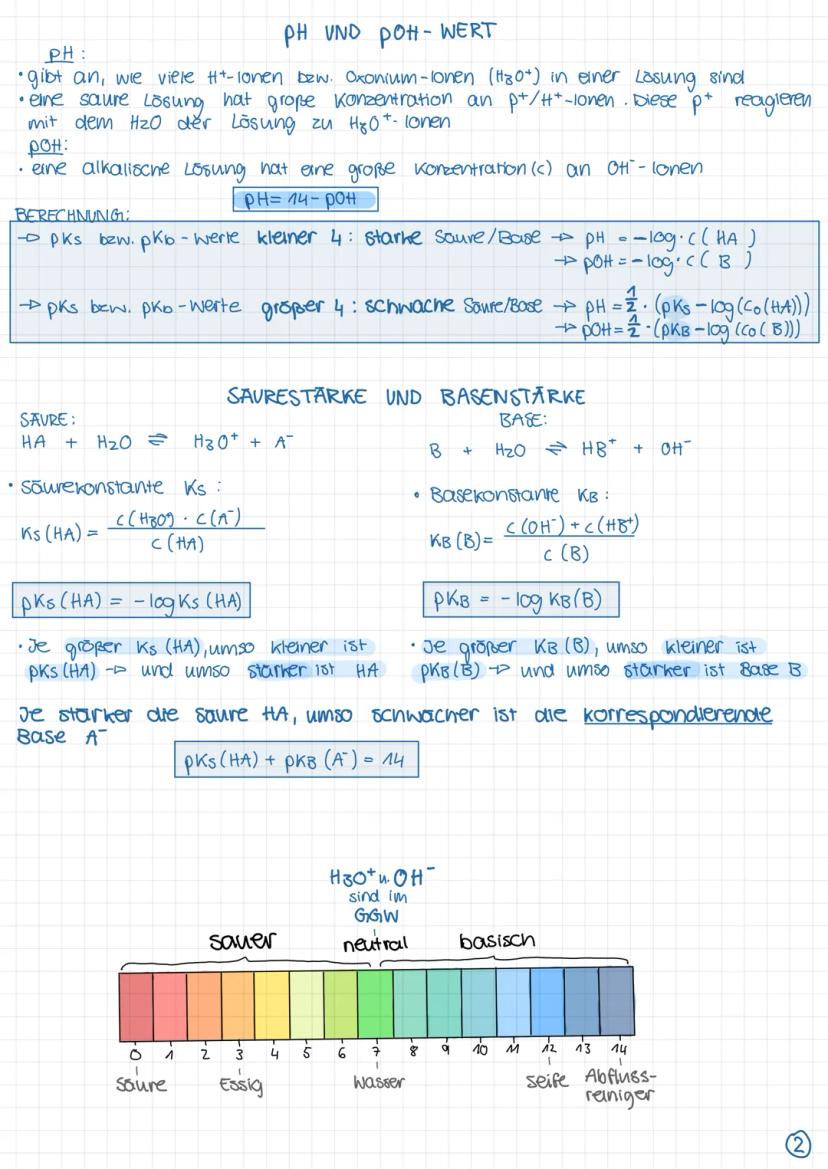 pH UND pOH-WERT
pH:
• gibt an, wie viele H⁺-Ionen bzw. Oxonium-Ionen (H₃O⁺) in einer Lösung sind
• eine saure Lösung hat große Konzentration an p⁺/H⁺-Ionen. Diese p⁺ reagieren
mit dem H₂O der Lösung zu H₃O⁺-Ionen
pOH:
• eine alkalische Lösung hat eine große Konzentration (c) an OH⁻-Ionen
pH = 14 - pOH
BERECHNUNG:
→ pKs bzw. pKb-Werte kleiner 4: starke Säure/Base → pH = -log·c(HA)
→ pOH = -log·c(B)
→ pKs bzw. pKb-Werte größer 4: schwache Säure/Base → pH = 1/2 · (pKs - log(c₀(HA)))
→ pOH = 1/2 · (pKB - log(c₀(B)))
SÄURESTÄRKE UND BASENSTÄRKE
SÄURE:
HA + H₂O ⇌ H₃O⁺ + A⁻
• Säurekonstante Ks:
Ks(HA) = c(H₃O⁺) · c(A⁻) / c(HA)
pKs(HA) = -log Ks(HA)
• Je größer Ks(HA), umso kleiner ist
pKs(HA) → und umso stärker ist HA
BASE:
B + H₂O ⇌ HB⁺ + OH⁻
• Basekonstante KB:
KB(B) = c(OH⁻) + c(HB⁺) / c(B)
pKB = -log KB(B)
• Je größer KB(B), umso kleiner ist
pKB(B) → und umso stärker ist Base B
Je stärker die Säure HA, umso schwächer ist die korrespondierende
Base A⁻
pKs(HA) + pKB(A⁻) = 14
H₃O⁺ u. OH⁻
sind im
GGW
sauer neutral basisch
0 1 2 3 4 5 6 7 8 9 10 11 12 13 14
Säure Essig Wasser Seife Abfluss-
reiniger
2